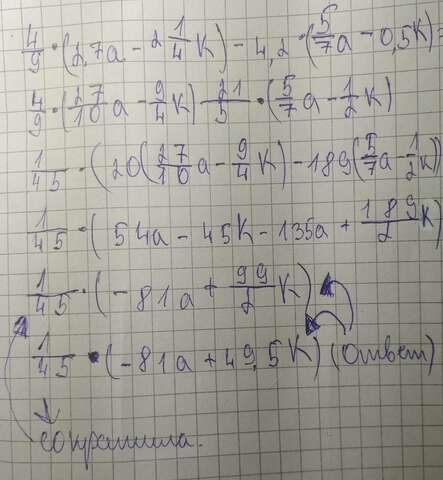 4/9 · (2,7a - 2 1/4 K) - 4,2 · (5/7 a - 0,5K) =
4/9 · (27/10 a - 9/4 K) - 21/5 · (5/7 a - 1/2 K)
1/45 · (20(27/10 a - 9/4 K) - 189(5/7 a - 1/2 K))
1/45 · (54a - 45K - 135a + 189/2 K)
1/45 · (-81a + 99/2 K)
1/45 · (-81a + 49,5K) (ответ)
сократила.